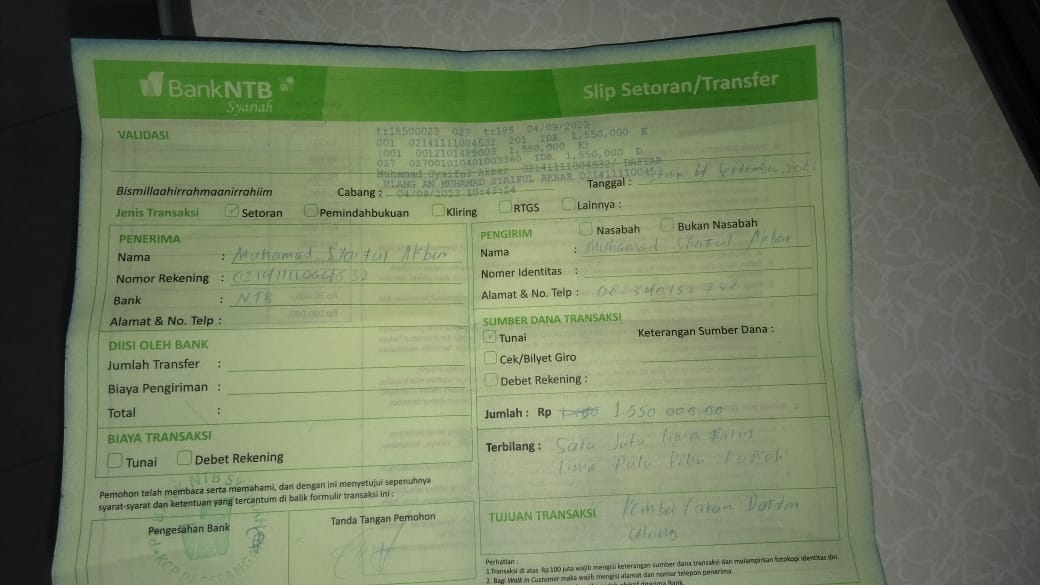 BankNTB
Syariah
Slip Setoran/Transfer
VALIDASI
tr18500023 027 tr185 04/09/2023
001 02141111004532 201 IDR 1,550,000 K
1,550,000 K)
IDR 1,550,000 D
Muhamad Syaiful Akbar 02141111004532/ DAFTAR
ULANG AN MUHAMAD SYAIFUL AKBAR
04/09/2023 10:43:24
Bismillaahirrahmaanirrahiim
Cabang :
Tanggal : 4 September
Jenis Transaksi
Setoran
Pemindahbukuan
Kliring
RTGS
Lainnya :
PENERIMA
Nama : Muhamad Syaiful Akbar
Nomor Rekening :
Bank : NTB
Alamat & No. Telp :
DIISI OLEH BANK
Jumlah Transfer :
Biaya Pengiriman :
Total :
BIAYA TRANSAKSI
Tunai
Debet Rekening
Pemohon telah membaca serta memahami, dan dengan ini menyetujui sepenuhnya
syarat-syarat dan ketentuan yang tercantum di balik formulir transaksi ini :
Pengesahan Bank
Tanda Tangan Pemohon
PENGIRIM
Nasabah
Bukan Nasabah
Nama : Muhamad Akbar
Nomer Identitas :
Alamat & No. Telp :
SUMBER DANA TRANSAKSI
Tunai
Keterangan Sumber Dana :
Cek/Bilyet Giro
Debet Rekening :
Jumlah : Rp 1.550 000.00
Terbilang : Satu Juta lima Ratus
lima Pulu Ribu Rupiah
TUJUAN TRANSAKSI Pembayaran Daftar
Ulang
Perhatian :
1.Transaksi di atas Rp 100 juta wajib mengisi keterangan sumber dana transaksi dan melampirkan fotokopi identitas diri.
2. Bagi Walk in Customer maka wajib mengisi alamat dan nomor telepon penerima.